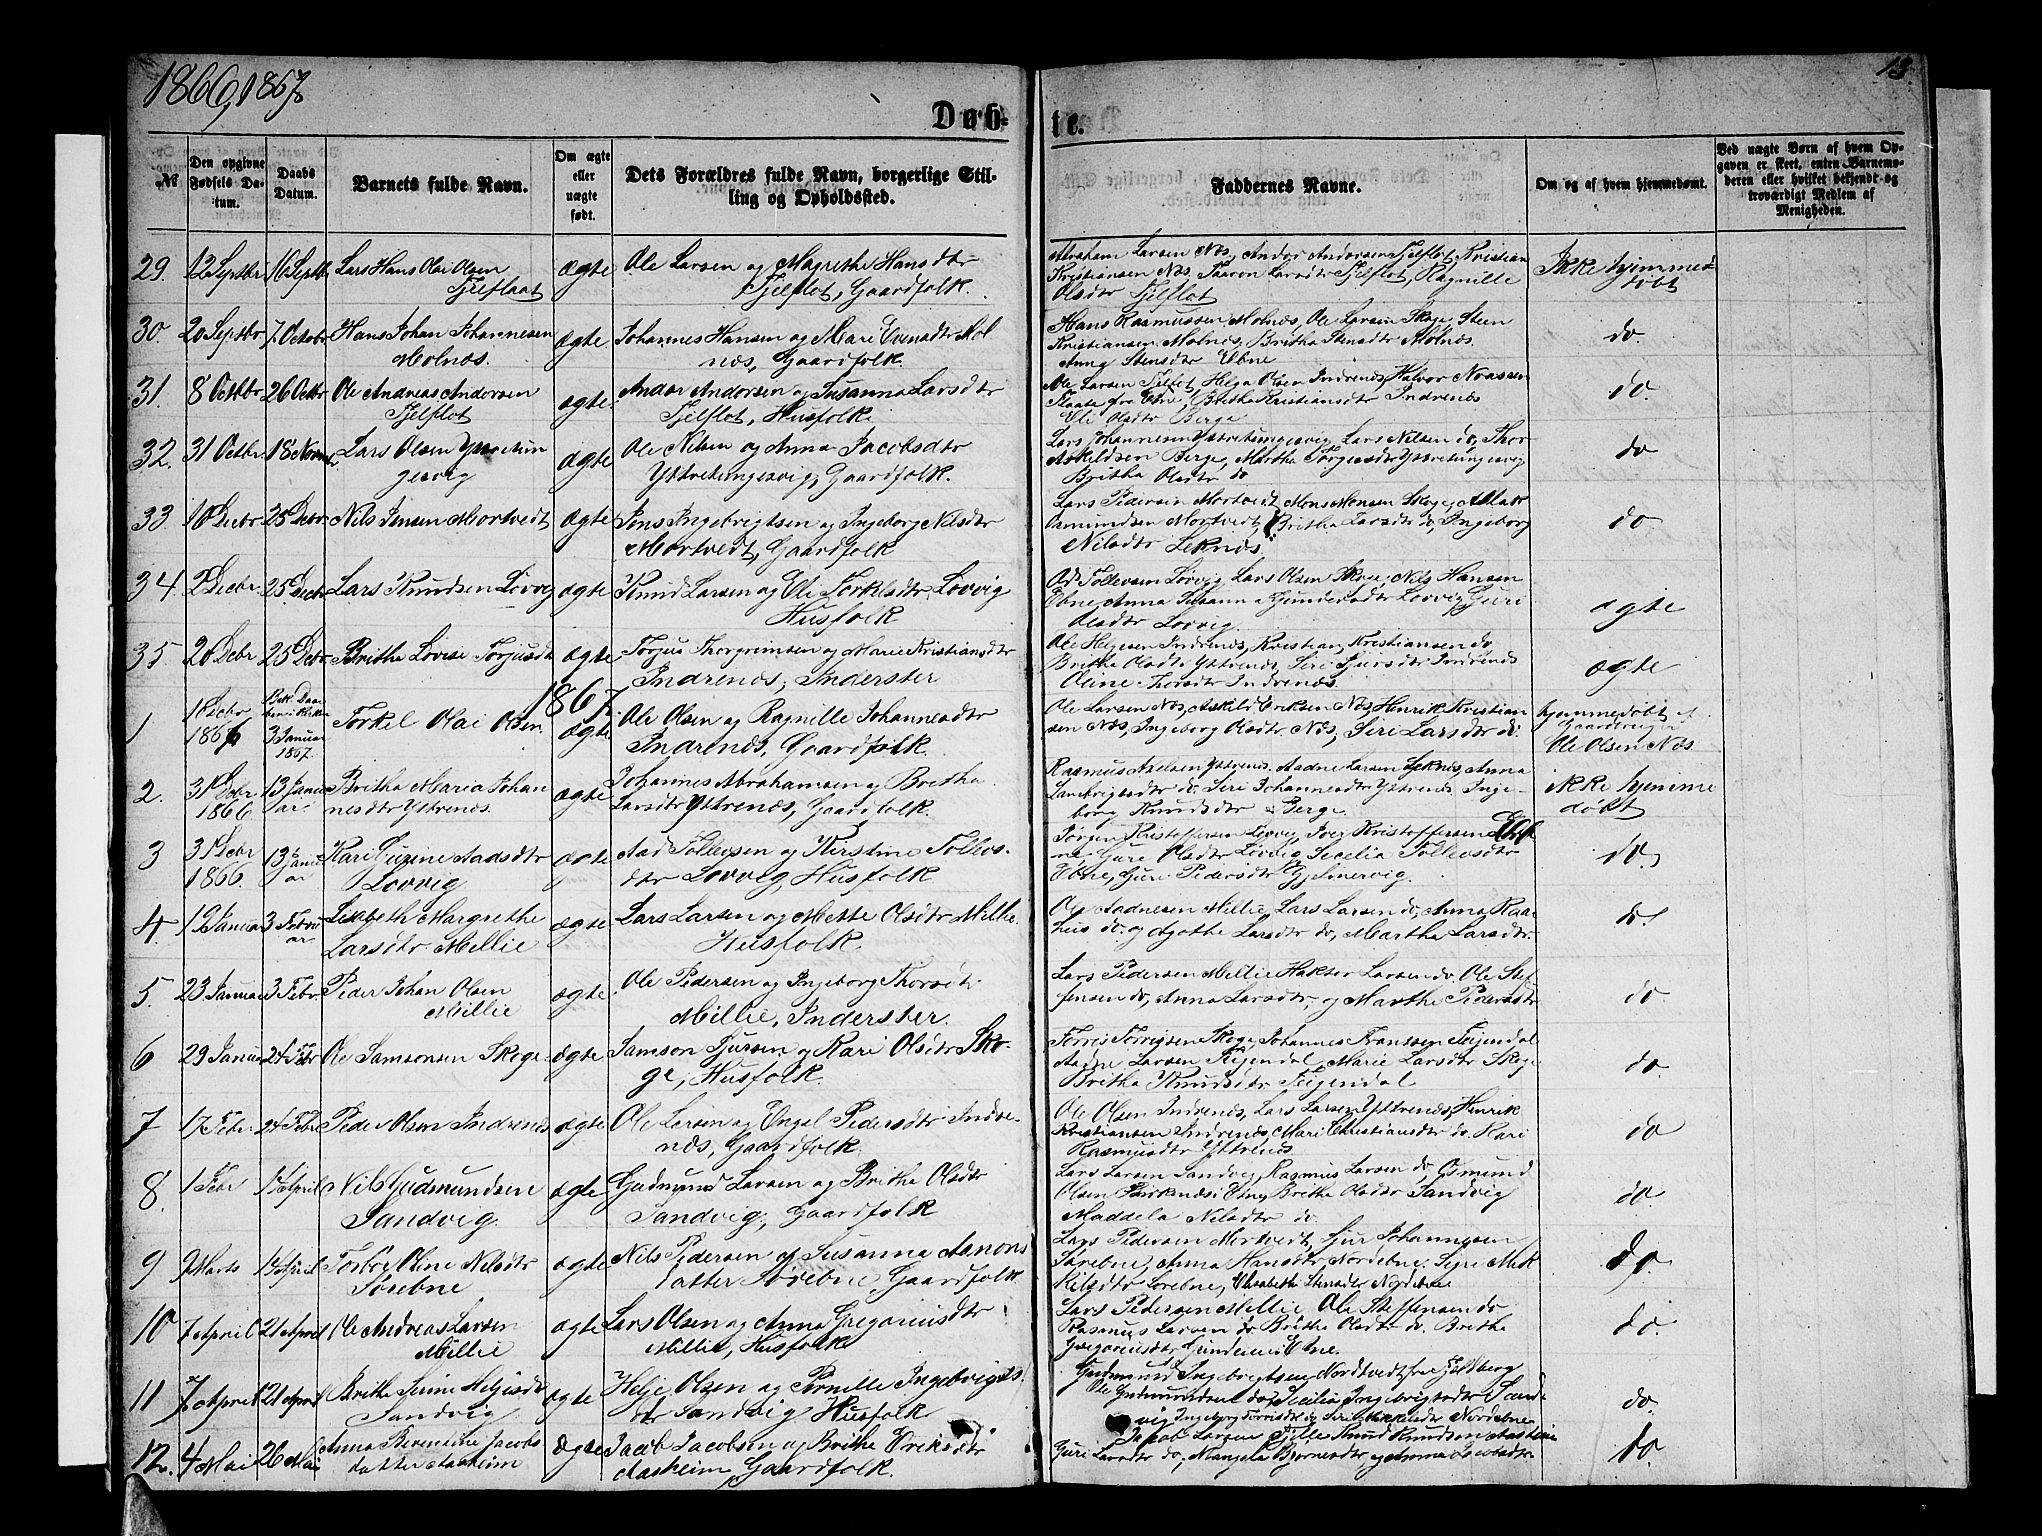 1866, 1867
13
Døb-
te.
№
Den opgivne Fødsels Datum.
Daabs Datum.
Barnets fulde Navn.
Om ægte eller uægte født.
Dets Forældres fulde Navn, borgerlige Stilling og Opholdssted.
Faddernes Navne.
Om og af hvem hjemmedøbt.
Ved uægte Børn af hvem Opgaven er skeet, enten Barnemoderen eller hvilket bekjendt og troværdigt Medlem af Menigheden.
29. 12 Septbr 16 Septbr Lars Hans Olai Olsen ægte Ole Larsen og Magrethe Hansdtr
Tjelflaat Tjelflot, Gaardfolk.
Abraham Larsen Næs, Andor Andersen Tjelflot, Kristian
Kristiansen Næs, Larsdtr Tjelflot, Ragnille
Olsdtr Tjelflot
Ikke hjemmedøbt
30. 20 Septbr 7 Octobr Hans Johan Johannesen ægte Johannes Hansen og Mari Mol
Molnæs. næs, Gaardfolk.
Hans Rasmussen Molnæs, Ole Larsen Skoge, Steen
Kristiansen Molnæs, Britha Stensdtr Molnæs
Anna Stensdtr Ebne
do.
31. 8 Octbr 26 Octbr Ole Andreas Andersen ægte Andor Andersen og Susanna Larsdtr
Tjelflot Tjelflot, Husfolk.
Ole Larsen Tjelflot, Helge Olsen Indrenæs, Halvor
Ebne, Britha Kristiansdtr Indrenæs
Eli Olsdtr Berge
do.
32. 31 Octbr 18 Novmbr Lars Olsen Yttretun ægte Ole Nilsen og Anna Jacobsdtr
gesvig Yttretungesvig, Gaardfolk.
Lars Johannesen Yttretungesvig, Lars Nilsen do, Thor
Askildsen Berge, Martha Yttretungesvig
Britha Olsdtr do
do
33. 10 Decbr 25 Debr Nils Jensen Mortvedt ægte Jens Ingebrigtsen og Ingeborg Nilsdtr
Mortvedt, Gaardfolk
Lars Pedersen Mortvedt, Mons Monsen Skoge,
Osmundsen Mortvedt, Britha Larsdtr do, Ingeborg
Nilsdtr Leknæs
do
34 2 Decbr 25 Decbr Lars Knudsen Løvvig ægte Knud Larsen og Eli Torkelsdtr Løvvig
Husfolk
Tollevsen Løvvig, Lars Olsen Skoge, Nils Hansen
Ebne, Anna Susanna Gundersdtr Løvvig, Guri
Olsdtr Løvvig
ægte
35 20 Debr 25 Debr Brithe Lovise Torjusdtr ægte Torjus Thorgrimsen og Marie Kristiansdtr
Indrenæs, Inderster
Ole Helgesen Indrenæs, Kristian Kristiansen do,
Britha Olsdtr Yttrenæs, Siri Sjursdtr Indrenæs
Oline Indrenæs.
ægte
1867.
1 1866 3 Januar 1867. Torkel Olai Olsen ægte Ole Olsen og Ragnille Johannesdtr
Indrenæs, Gaardfolk.
Ole Larsen Næs, Askild Eriksen Næs, Henrik Kristian
sen Næs, Ingeborg Olsdtr Næs, Siri Larsdtr do.
hjemmedøbt af
Gaardbruger
Ole Olsen Næs
2. 31 Debr 1866 13 Januar Britha Maria Johan ægte Johannes Abrahamsen og Britha
nesdtr Yttrenæs. Larsdtr Yttrenæs, Gaardfolk.
Rasmus Yttrenæs. Aadne Larsen Leknæs, Anna
do. Siri Johannesdtr Yttrenæs. Inge-
borg Knudsdtr Berge
ikke hjemme
døbt
3 31 Debr 1866. 13 Januar Kari Aadsdtr ægte Aad Tollevsen og Kirstine Tollevs-
Løvvig dtr Løvvig, Husfolk
Jørgen Kristoffersen Løvvig, Iver Kristoffersen Eb
ne, Guri Olsdtr Løvvig, Secelia Tollevsdtr
Ebne, Guri Pedersdtr Gjelmervig.
do
4. 19 Januar 3 Februar Lisbeth Margrethe ægte Lars Larsen og Mette Olsdtr Millie
Larsdtr Millie Husfolk.
Ole Aadnesen Millie, Lars Larsen do, Anna
do. og Agathe Larsdtr do, Martha Larsdtr.
do
5. 23 Januar 3 Febr. Peder Johan Olsen ægte Ole Pedersen og Ingeborg Thorsdtr
Millie Millie, Inderster.
Lars Pedersen Millie, Larsen do. Ole Stef
fensen do, Anna Larsdtr, og Marthe Pedersdtr
do.
6 29 Januar 24 Febr Ole Samsonsen Skoge ægte Samson Sjursen og Kari Olsdtr Sko-
ge, Husfolk.
Torris Torrissen Skoge, Johannes Frantsen Teigendal
Aadne Larsen Teigendal, Marie Larsdtr Skoge
Britha Knudsdtr Teigendal
do.
7 17 Febr. 24 Febr Peder Olsen Indrenæs ægte Ole Larsen og Engel Pedersdtr Indre-
næs, Gaardfolk.
Ole Olsen Indrenæs, Lars Larsen Yttrenæs, Henrik
Kristiansen Indrenæs, Mari Christiansdtr do. Kari
Rasmusdtr Yttrenæs
do
8. 1 Febr April Nils Gudmundsen ægte Gudmund Larsen og Brithe Olsdtr
Sandvig. Sandvig, Gaardfolk
Lars Larsen Sandvig, Rasmus Larsen do, Osmund
Olsen Britha Olsdtr Sandvig
Maddela Nilsdtr do.
do.
9 9 Marts April Oline Nilsdtr ægte Nils Pedersen og Susanna Asmons
Sørebne datter Sørebne, Gaardfolk
Lars Pedersen Mortvedt, Sjur Johannesen
Sørebne, Anna Hansdtr Nordebne,
Sørebne, Elisabeth Stensdtr Nordebne
do.
10 7 April 21 April Ole Andreas Larsen ægte Lars Olsen og Anna Gregoriusdtr
Millie Millie, Husfolk
Lars Pedersen Millie, Ole Steffensen do
Rasmus Larsen do Brithe Olsdtr do. Brithe
Gregoriusdtr Ebne.
do.
11 7 April 21 April Brithe Serine Helgesdtr ægte Helje Olsen og Pernille Ingebrigts
Sandvig dtr Sandvig Husfolk
Gudmund Ingebrigtsen Nordtvedt, fra Fjeldberg
Ole Gudmundsen do, Secilia Ingebrigtsdtr Sand
vig, Ingeborg Torrisdtr do, Siri Nordebne
do.
12. 4 Mai 26 Mai Anna Berentine Jacobs ægte Jacob Jacobsen og Brithe Eriksdtr
datter Aasheim Aasheim, Gaardfolk.
Jacob Larsen Knud Knudsen Aasheim
Guri Larsdtr do, Mangela Bjørnesdtr og Anna Jacobsdtr
do.